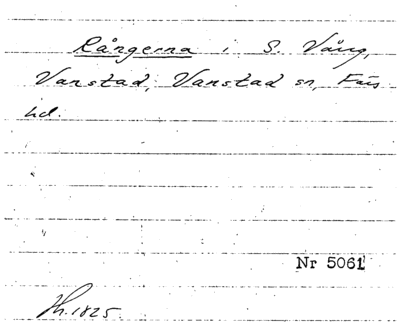 Rångerna i S. Vång,
Vanstad, Vanstad sn, Färs
hd.
Nr 5061
Jh. 1825.